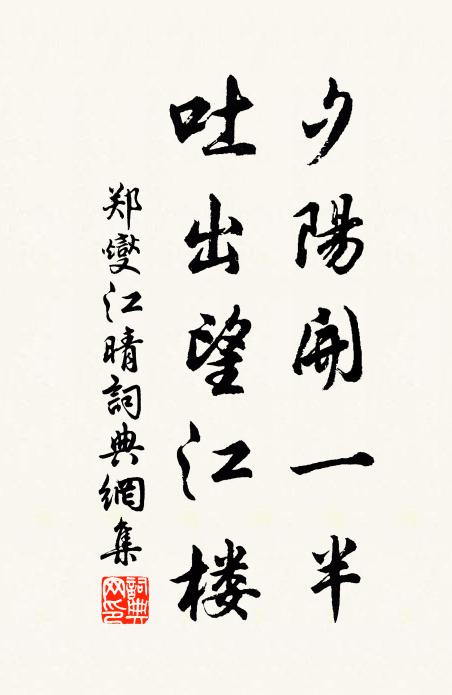 夕陽開一半
吐出望江楼
郑燮江晴詞典網集
詞典網印